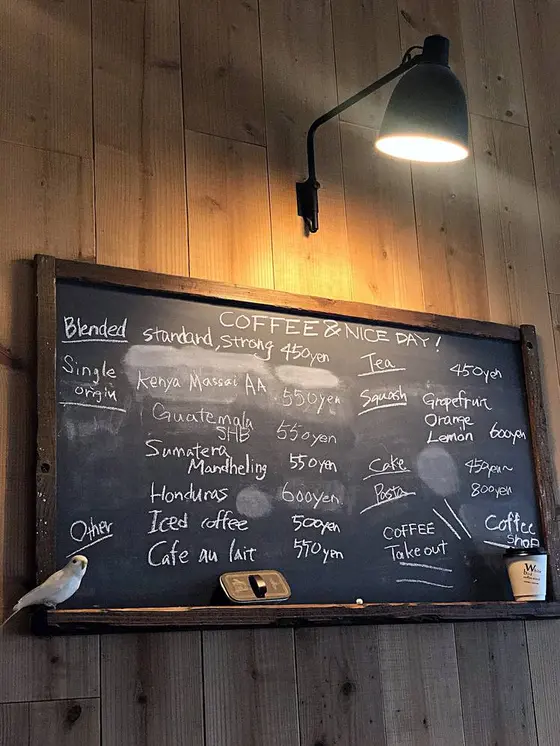 COFFEE & NICE DAY!
Blended standard, Strong 450yen
Single
origin
Kenya Massai AA 550yen
Guatemala
SHB 550yen
Sumatera
Mandheling 550yen
Honduras 600yen
Other
Iced coffee 500yen
Cafe au lait 550yen
Tea 450yen
Squash Grapefruit
Orange
Lemon 600yen
Cake 450yen~
Pasta 800yen
COFFEE
Takeout
Coffee
shop